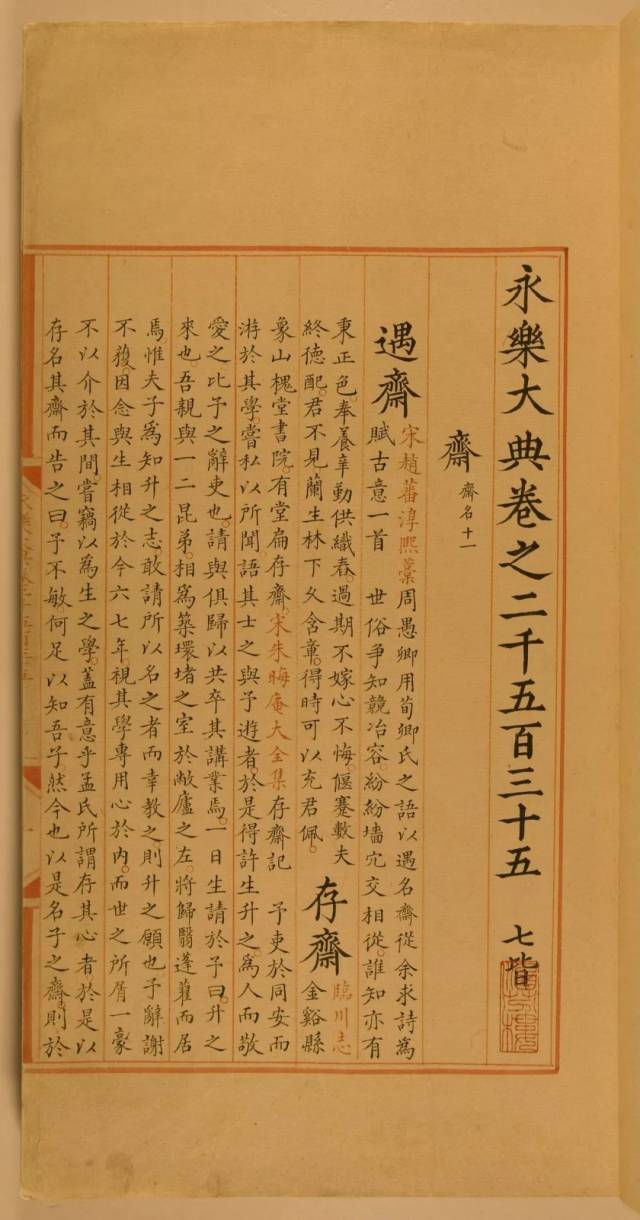 永樂大典卷之二千五百三十五 七皆
齋 齋名十一
遇齋 宋趙蕃淳熙藁 周愚卿用荀卿氏之語以遇名齋從余求詩爲
賦古意一首 世俗爭知競冶容紛紛墻宂交相從誰知亦有
秉正色奉養辛勤供織舂過期不嫁心不悔偃蹇數夫
終德配君不見蘭生林下久含章得時可以充君佩 存齋 臨川志
金谿縣
象山槐堂書院有堂扁存齋 宋朱晦庵大全集 存齋記 予吏於同安而
游於其學嘗私以所聞語其士之與予遊者於是得許生升之爲人而敬
愛之比予之辭吏也請與俱歸以共卒其講業焉一日生請於予曰升之
來也吾親與一二昆弟相爲築環堵之室於敝廬之左將歸翳蓬藋而居
焉惟夫子爲知升之志敢請所以名之者而幸教之則升之願也予辭謝
不獲因念與生相從於今六七年視其學專用心於內而世之所屑一豪
不以介於其間嘗竊以爲生之學蓋有意乎孟氏所謂存其心者於是以
存名其齋而告之曰予不敏何足以知吾子然今也以是名子之齋則於